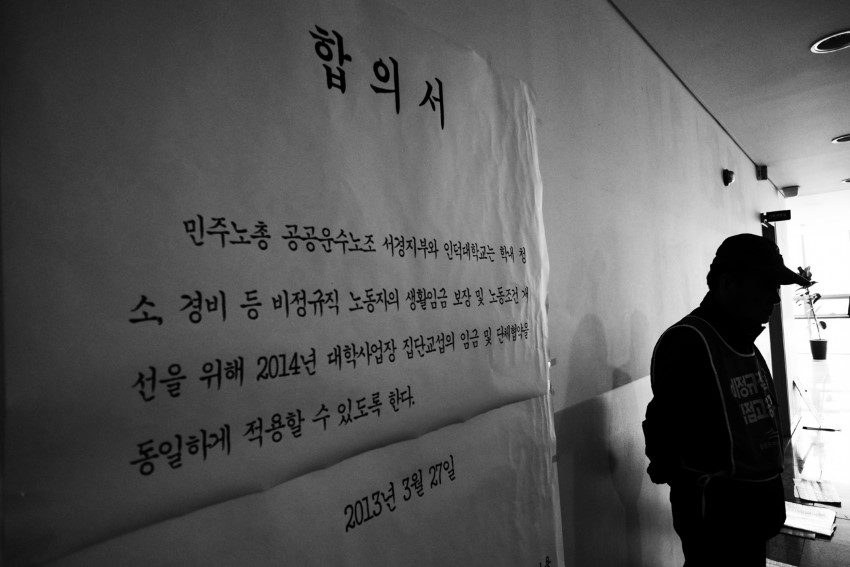 합의서
민주노총 공공운수노조 서경지부와 인덕대학교는 학내 청
소, 경비 등 비정규직 노동자의 생활임금 보장 및 노동조건 개
선을 위해 2014년 대학사업장 집단교섭의 임금 및 단체협약을
동일하게 적용할 수 있도록 한다.
2013년 3월 27일
비정규